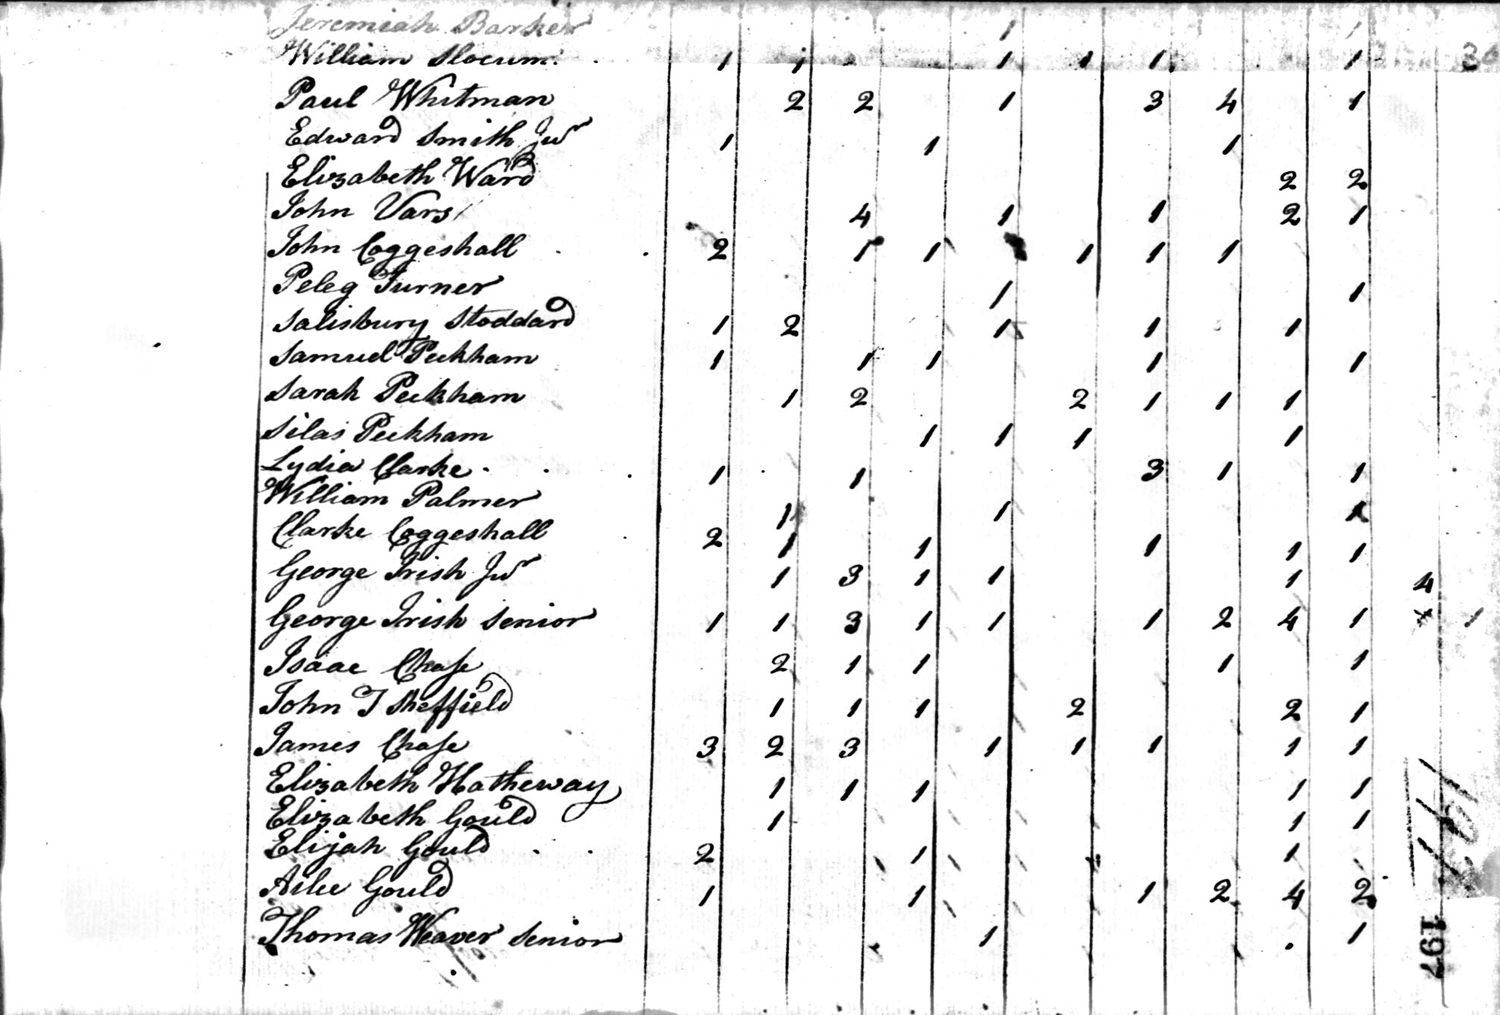 Jeremiah Barker 1 1
William Slocum 1 1 1 1 1 1 3
Paul Whitman 2 2 1 3 4 1
Edward Smith Jur 1 1 1
Elizabeth Ward 2 2
John Vars 4 1 1 2 1
John Coggeshall 2 1 1 1 1 1
Peleg Turner 1 1
Salisbury Stoddard 1 2 1 1 1
Samuel Peckham 1 1 1 1 1
Sarah Peckham 1 2 2 1 1 1
Silas Peckham 1 1 1 1
Lydia Clarke 1 1 3 1 1
William Palmer 1 1 1
Clarke Coggeshall 2 1 1 1 1 1
George Irish Jur 1 3 1 1 1 4
George Irish Senior 1 1 3 1 1 1 2 4 1 1
Isaac Chase 2 1 1 1 1
John T Sheffield 1 1 1 2 2 1
James Chase 3 2 3 1 1 1 1 1
Elizabeth Hatheway 1 1 1 1 1
Elizabeth Gould 1 1 1
Elijah Gould 2 1 1
Gould 1 1 1 2 4 2
Thomas Weaver Senior 1 1
197
197